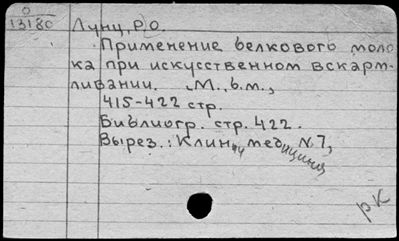 0
13180
Лунц, Р О.
Применение белкового моло
ка при искусственном вскарм-
ливании. М., б.м.,
415-422 стр.
Библиогр. стр. 422.
Вырез.: Клин. медицина N.7,
рк